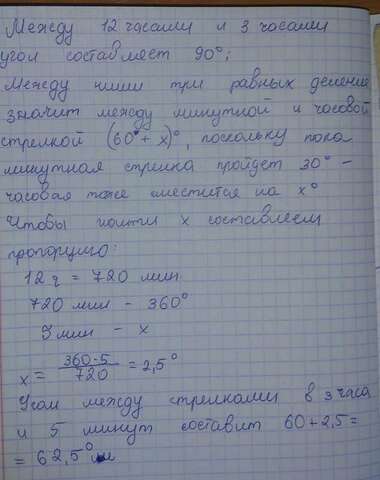 Между 12 часами и 3 часами
угол составляет 90°;
Между ними три равных деление
значит между минутной и часовой
стрелкой (60° + x)°, поскольку пока
минутная стрелка пройдет 30° –
часовая тоже сместится на x°
Чтобы найти x составляем
пропорцию:
12 ч = 720 мин.
720 мин – 360°
5 мин – x
x = 360·5 / 720 = 2,5°
Угол между стрелками в 3 часа
и 5 минут составит 60 + 2,5 =
= 62,5°